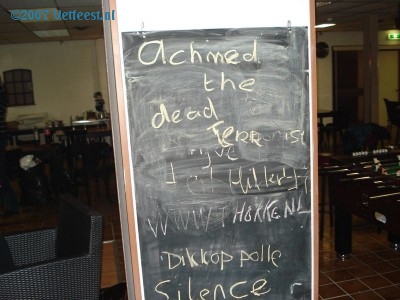 ©2007 Jetfeest.nl
achmed
the
dead
TERRORIST
WWW.THOKKE.NL
Dikkop polle
Silence